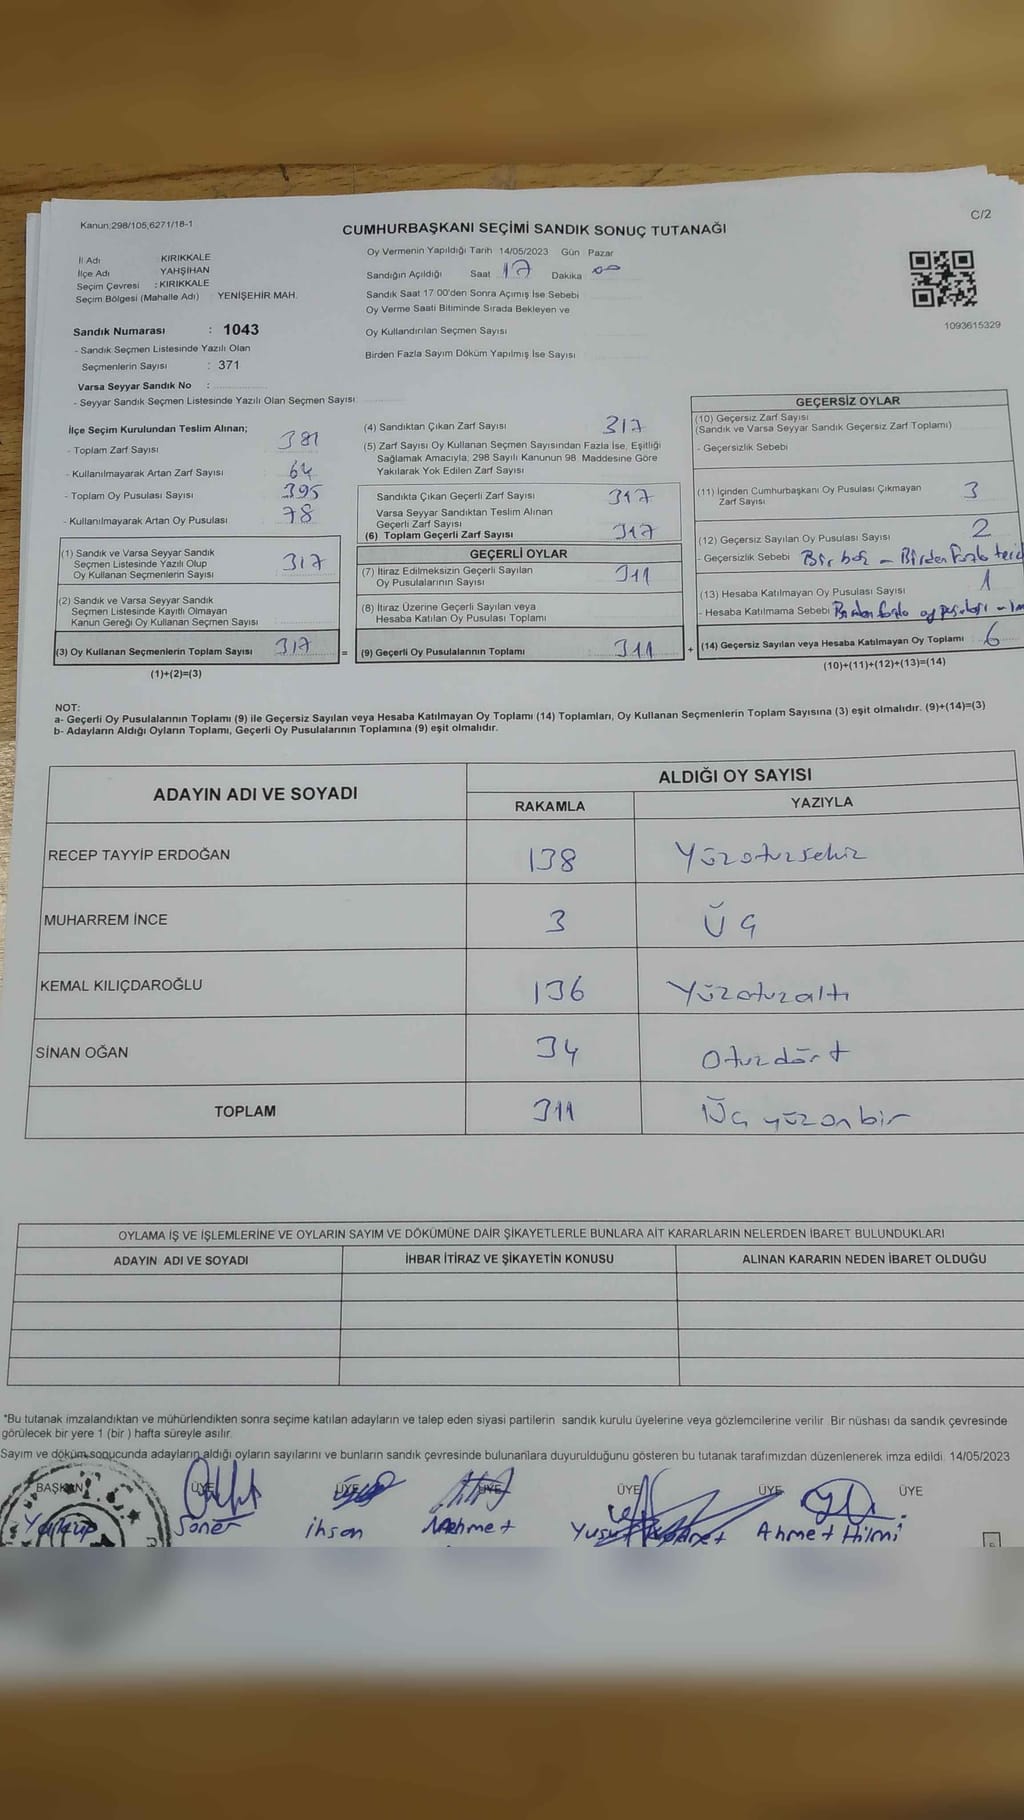 Kanun:298/105,6271/18-1
C/2
CUMHURBAŞKANI SEÇİMİ SANDIK SONUÇ TUTANAĞI
İl Adı : KIRIKKALE
İlçe Adı YAHŞİHAN
Seçim Çevresi : KIRIKKALE
Seçim Bölgesi (Mahalle Adı) YENİŞEHİR MAH.
Sandık Numarası : 1043
- Sandık Seçmen Listesinde Yazılı Olan
Seçmenlerin Sayısı : 371
Varsa Seyyar Sandık No :
- Seyyar Sandık Seçmen Listesinde Yazılı Olan Seçmen Sayısı
Oy Vermenin Yapıldığı Tarih 14/05/2023 Gün Pazar
Sandığın Açıldığı Saat 17 Dakika 00
Sandık Saat 17 00'den Sonra Açımış İse Sebebi
Oy Verme Saati Bitiminde Sırada Bekleyen ve
Oy Kullandırılan Seçmen Sayısı
Birden Fazla Sayım Döküm Yapılmış İse Sayısı
1093615329
İlçe Seçim Kurulundan Teslim Alınan;
- Toplam Zarf Sayısı 381
- Kullanılmayarak Artan Zarf Sayısı 64
- Toplam Oy Pusulası Sayısı 395
- Kullanılmayarak Artan Oy Pusulası 78
(1) Sandık ve Varsa Seyyar Sandık
Seçmen Listesinde Yazılı Olup
Oy Kullanan Seçmenlerin Sayısı 317
(2) Sandık ve Varsa Seyyar Sandık
Seçmen Listesinde Kayıtlı Olmayan
Kanun Gereği Oy Kullanan Seçmen Sayısı
(3) Oy Kullanan Seçmenlerin Toplam Sayısı 317 =
(1)+(2)=(3)
(4) Sandıktan Çıkan Zarf Sayısı 317
(5) Zarf Sayısı Oy Kullanan Seçmen Sayısından Fazla İse, Eşitliği
Sağlamak Amacıyla, 298 Sayılı Kanunun 98. Maddesine Göre
Yakılarak Yok Edilen Zarf Sayısı
Sandıkta Çıkan Geçerli Zarf Sayısı 317
Varsa Seyyar Sandıktan Teslim Alınan
Geçerli Zarf Sayısı
(6) Toplam Geçerli Zarf Sayısı 317
GEÇERLİ OYLAR
(7) İtiraz Edilmeksizin Geçerli Sayılan
Oy Pusulalarının Sayısı 311
(8) İtiraz Üzerine Geçerli Sayılan veya
Hesaba Katılan Oy Pusulası Toplamı
(9) Geçerli Oy Pusulalarının Toplamı : 311 +
GEÇERSİZ OYLAR
(10) Geçersiz Zarf Sayısı
(Sandık ve Varsa Seyyar Sandık Geçersiz Zarf Toplamı)
- Geçersizlik Sebebi
(11) İçinden Cumhurbaşkanı Oy Pusulası Çıkmayan
Zarf Sayısı 3
(12) Geçersiz Sayılan Oy Pusulası Sayısı 2
- Geçersizlik Sebebi Bir boş - Birden fazla
(13) Hesaba Katılmayan Oy Pusulası Sayısı 1
- Hesaba Katılmama Sebebi Birden fazla oy pusulası
(14) Geçersiz Sayılan veya Hesaba Katılmayan Oy Toplamı 6
(10)+(11)+(12)+(13)=(14)
NOT:
a- Geçerli Oy Pusulalarının Toplamı (9) ile Geçersiz Sayılan veya Hesaba Katılmayan Oy Toplamı (14) Toplamları, Oy Kullanan Seçmenlerin Toplam Sayısına (3) eşit olmalıdır. (9)+(14)=(3)
b- Adayların Aldığı Oyların Toplamı, Geçerli Oy Pusulalarının Toplamına (9) eşit olmalıdır.
ADAYIN ADI VE SOYADI ALDIĞI OY SAYISI
RAKAMLA YAZIYLA
RECEP TAYYİP ERDOĞAN 138 Yüzotuzsekiz
MUHARREM İNCE 3 Üç
KEMAL KILIÇDAROĞLU 136 Yüzotuzaltı
SİNAN OĞAN 34 Otuzdört
TOPLAM 311 Üç yüzonbir
OYLAMA İŞ VE İŞLEMLERİNE VE OYLARIN SAYIM VE DÖKÜMÜNE DAİR ŞİKAYETLERLE BUNLARA AİT KARARLARIN NELERDEN İBARET BULUNDUKLARI
ADAYIN ADI VE SOYADI İHBAR İTİRAZ VE ŞİKAYETİN KONUSU ALINAN KARARIN NEDEN İBARET OLDUĞU
*Bu tutanak imzalandıktan ve mühürlendikten sonra seçime katılan adayların ve talep eden siyasi partilerin sandık kurulu üyelerine veya gözlemcilerine verilir. Bir nüshası da sandık çevresinde
görülecek bir yere 1 (bir ) hafta süreyle asılır.
Sayım ve döküm sonucunda adayların aldığı oyların sayılarını ve bunların sandık çevresinde bulunanlara duyurulduğunu gösteren bu tutanak tarafımızdan düzenlenerek imza edildi. 14/05/2023
BAŞKAN ÜYE ÜYE ÜYE ÜYE ÜYE ÜYE
Yakup Soner ihsan Mehmet Yusuf Ahmet Hilmi